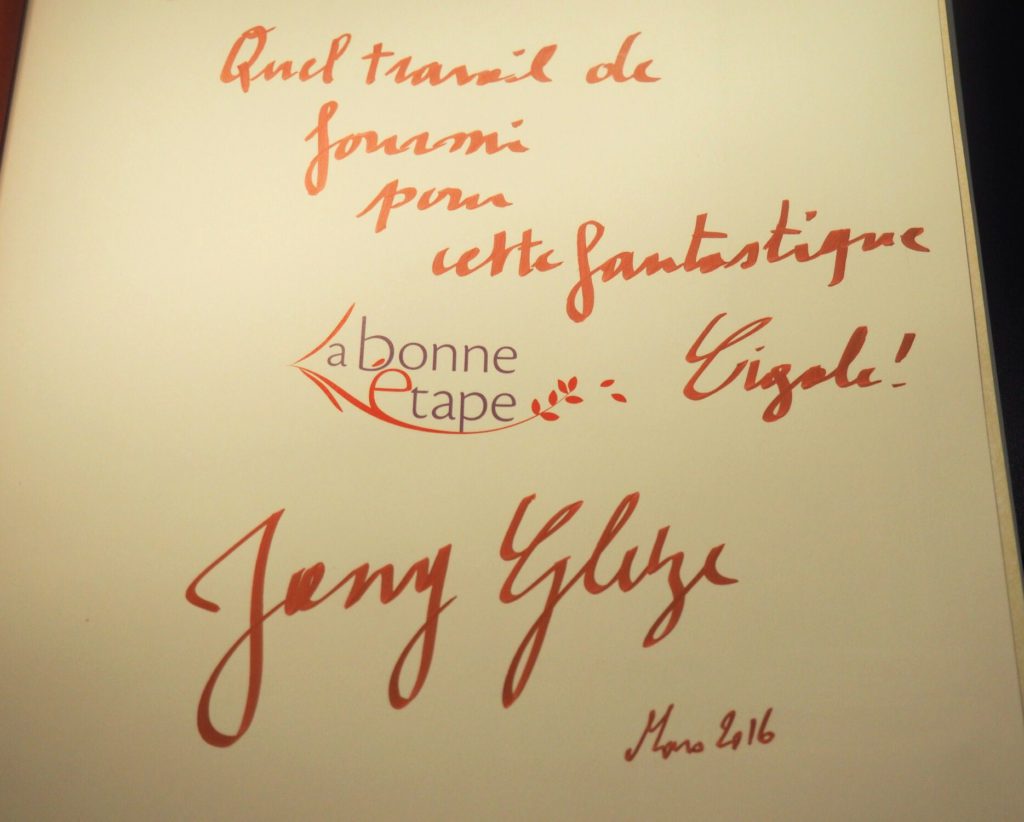 Quel travail de
fourmi
pour
cette fantastique
Cigale!
La bonne
étape
Jany Gleize
Mars 2016